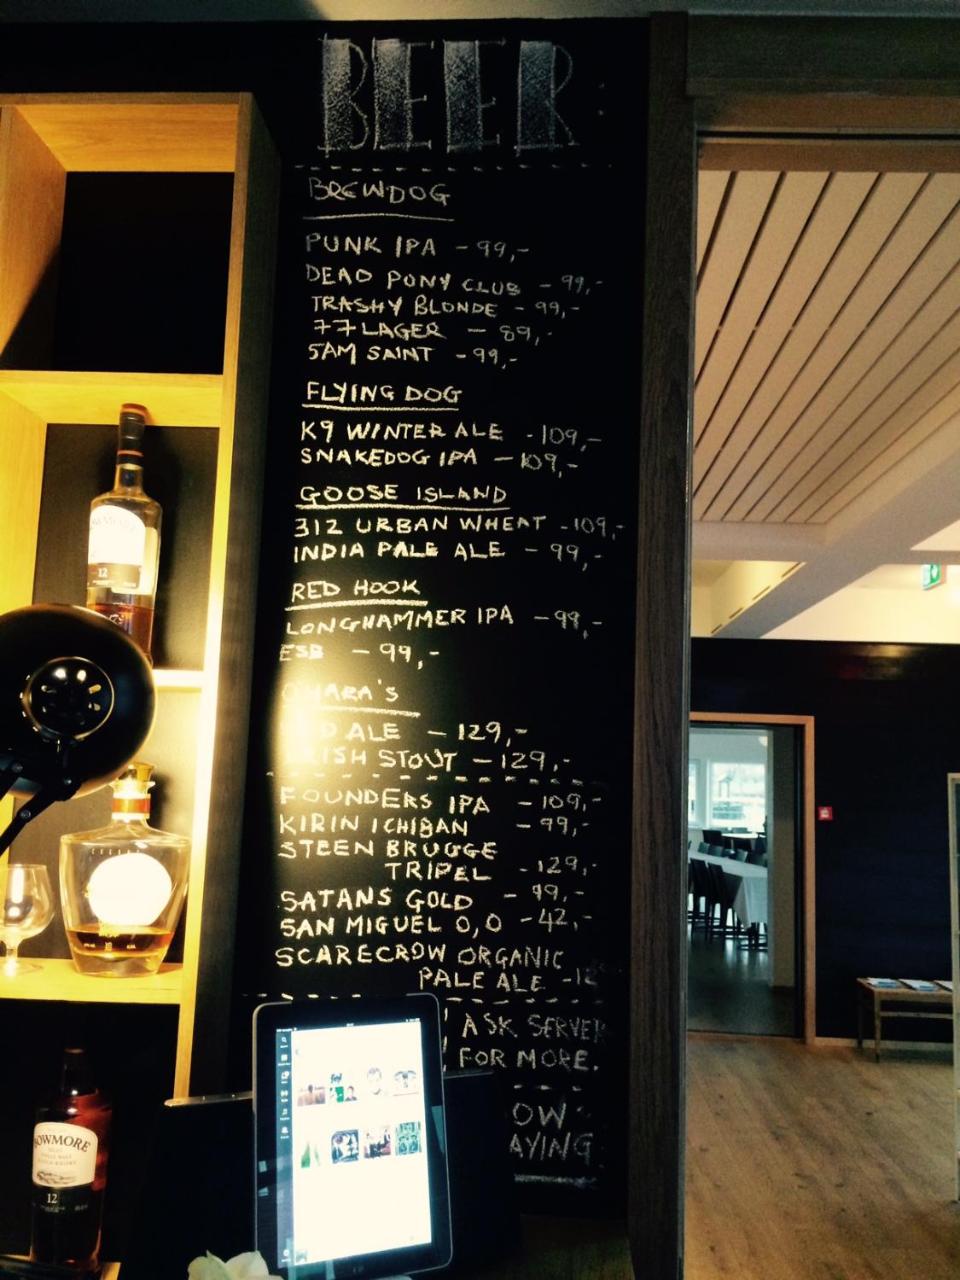 BEER:
BREWDOG
PUNK IPA - 99,-
DEAD PONY CLUB - 99,-
TRASHY BLONDE - 99,-
77 LAGER - 89,-
5AM SAINT - 99,-
FLYING DOG
K9 WINTER ALE - 109,-
SNAKEDOG IPA - 109,-
GOOSE ISLAND
312 URBAN WHEAT - 109,-
INDIA PALE ALE - 99,-
RED HOOK
LONGHAMMER IPA - 99,-
ESB - 99,-
O'HARA'S
RED ALE - 129,-
IRISH STOUT - 129,-
FOUNDERS IPA - 109,-
KIRIN ICHIBAN - 99,-
STEEN BRUGGE
TRIPEL - 129,-
SATANS GOLD - 99,-
SAN MIGUEL 0,0 - 42,-
SCARECROW ORGANIC
PALE ALE - 12
ASK SERVER
FOR MORE.
OW
AYING
12
BOWMORE
12